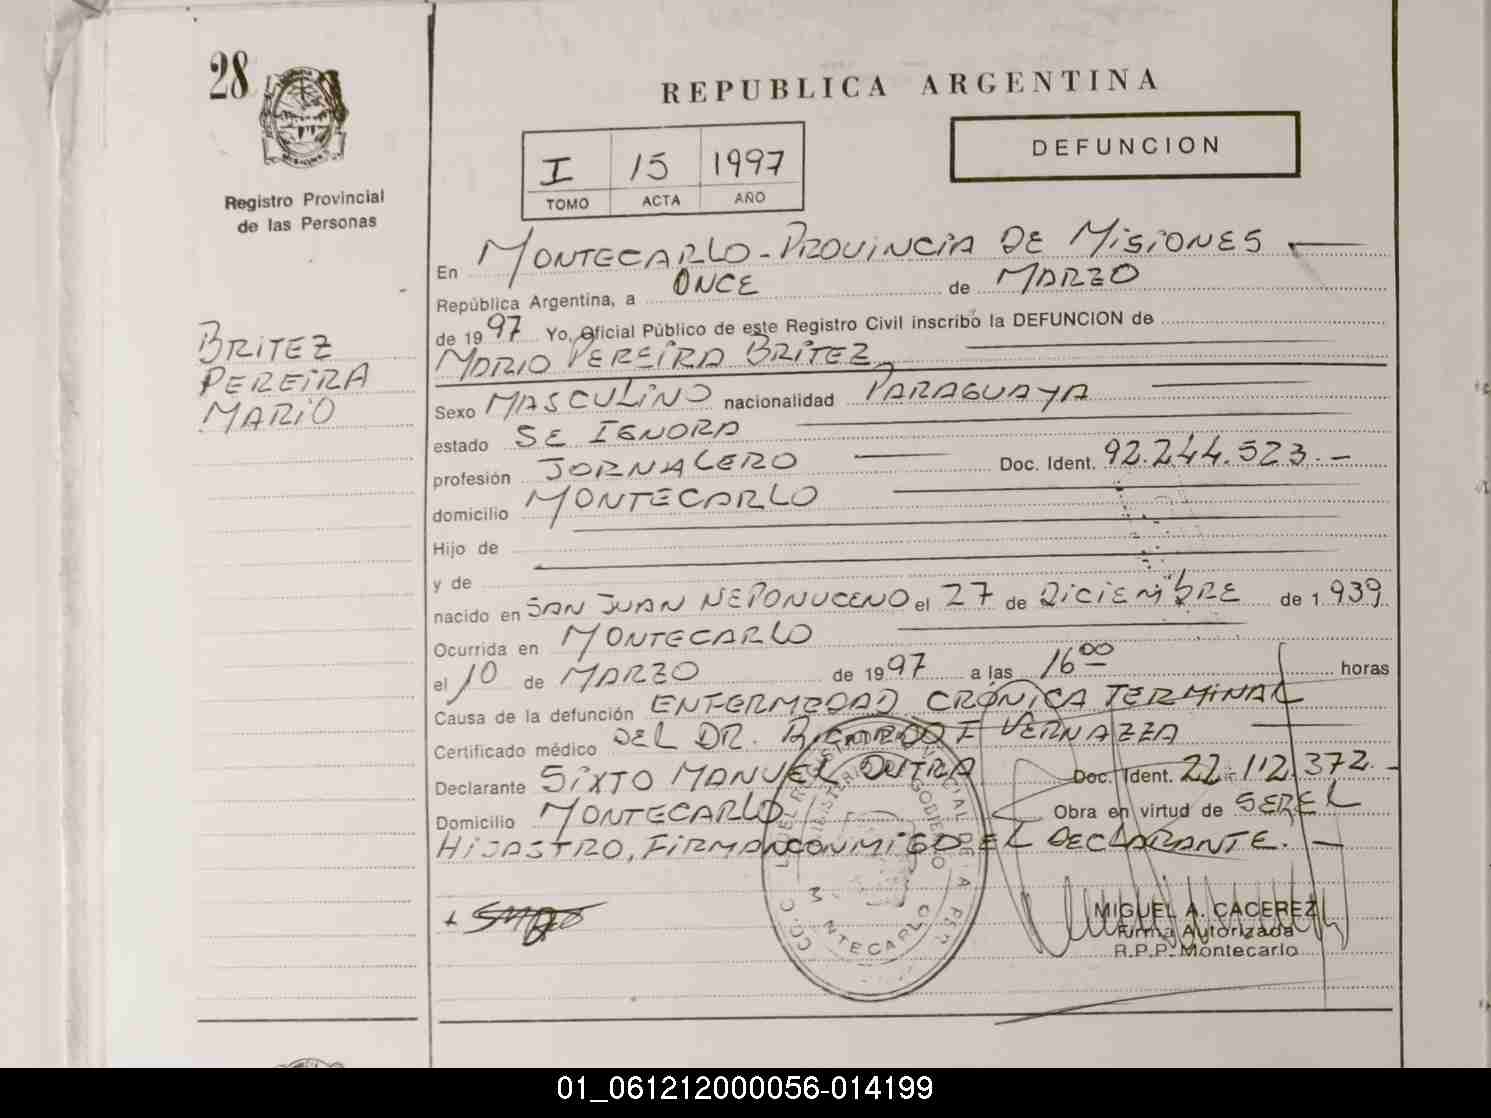 28
REPUBLICA ARGENTINA
DEFUNCION
I 15 1997
TOMO ACTA AÑO
Registro Provincial
de las Personas
BRITEZ
PEREIRA
MARIO
En MONTECARLO - PROVINCIA DE MISIONES
República Argentina, a ONCE de MARZO
de 1997 Yo, Oficial Público de este Registro Civil inscribo la DEFUNCION de
MARIO PEREIRA BRITEZ
Sexo MASCULINO nacionalidad PARAGUAYA
estado SE IGNORA
profesión JORNALERO Doc. Ident. 92.244.523.-
domicilio MONTECARLO
Hijo de
y de
nacido en SAN JUAN NEPONUCENO el 27 de DICIEMBRE de 1939
Ocurrida en MONTECARLO
el 10 de MARZO de 1997 a las 16 00 horas
Causa de la defunción ENFERMEDAD CRÓNICA TERMINAL
Certificado médico DEL DR. RICARDO F VERNAZZA
Declarante SIXTO MANUEL DUTRA Doc. Ident. 22.112.372.-
Domicilio MONTECARLO Obra en virtud de SER EL
HIJASTRO, FIRMAN CONMIGO EL DECLARANTE.-
MONTECARLO
MIGUEL A. CACEREZ
Firma Autorizada
R.P.P. Montecarlo
01_061212000056-014199